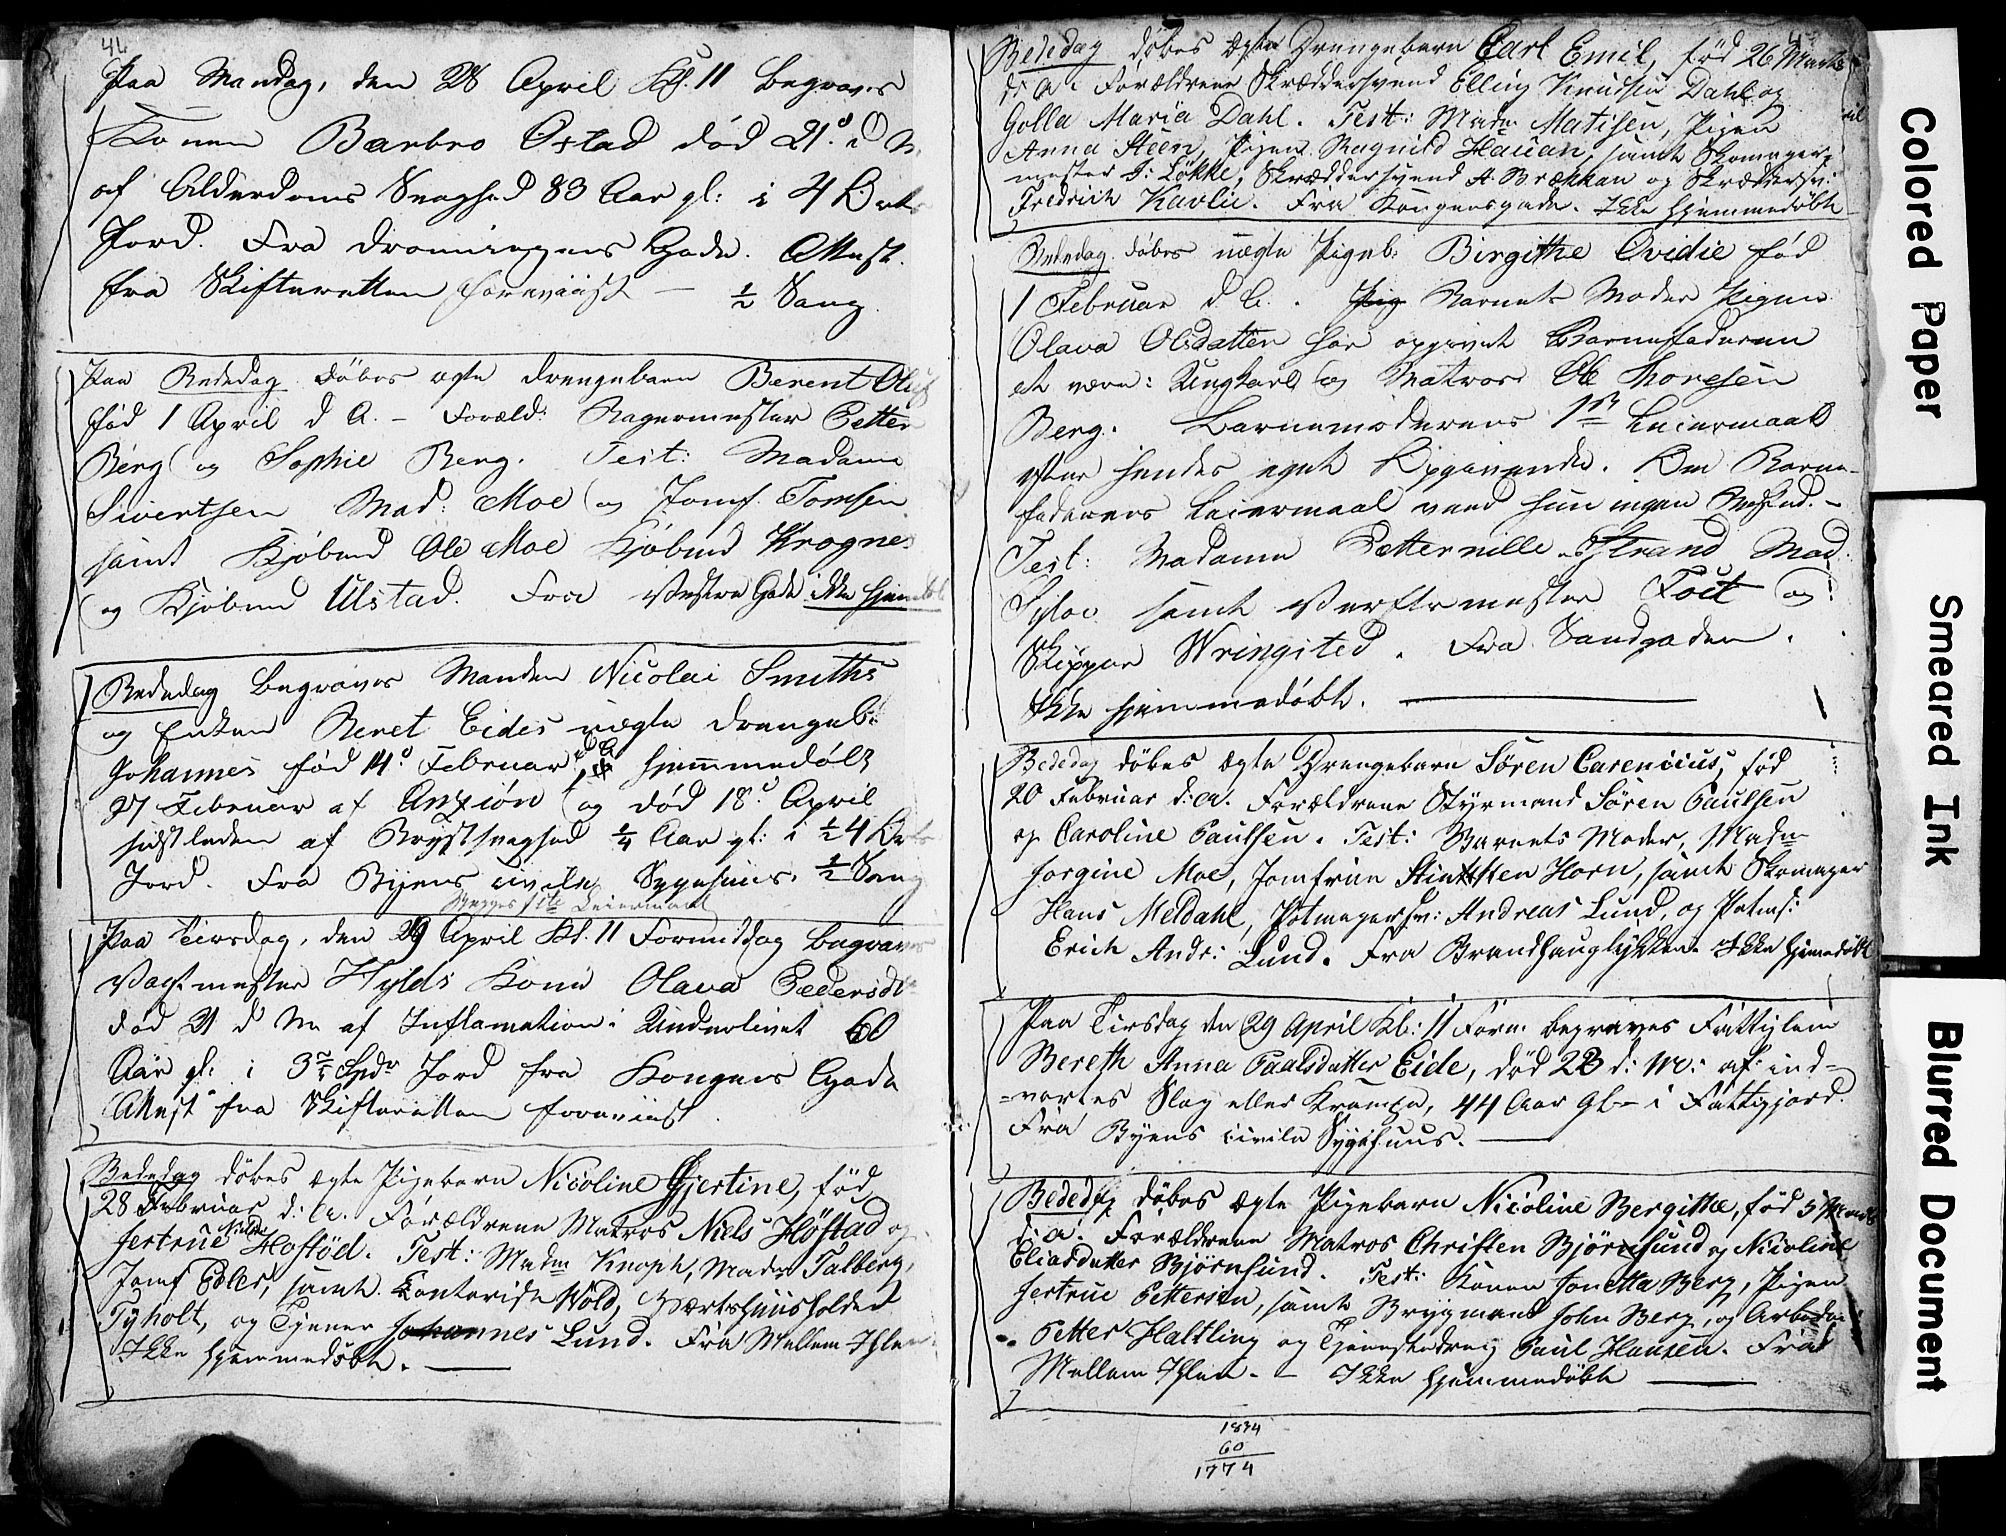 44
Paa Mandag, den 28 April Kl. 11 begraves
Konen Barbro Østad død 21d d M.
af Alderdoms Svaghed 83 Aar gl: i 4 Ørts
Jord. Fra Dronningens Gade. Attest.
fra Skifteretten foreviist — ½ Sang.
Paa Bededag døbes ægte Drengebarn Berent Oluf
fød 1 April d A. – Foræld: Bagermester Petter
Berg og Sophie Berg. Test: Madame
Sivertsen Mad: Moe og Jomf. Tomsen
samt Kjøbmd Ole Moe Kjøbmd Krognes
og Kjøbmd Ulstad. Fra Vestre Gade ikke hjemdøbt
Bededag begraves Manden Nicolai Smiths
og Enken Beret Eides uægte Drengeb:
Johannes fød 14d Februar d A hjemmedøbt
27 Februar af og død 18d April
sidstleden af Brystsvaghed ¼ Aar gl: i ½ 4 Ørts
Jord. Fra Byens civile Sygehuus. ½ Sang
Begges 1ste Leiermaal
Paa Tirsdag, den 29 April Kl. 11 Formiddag begraves
Vagtmester Hylds Kone Olava Pedersdt
død 21 d M af Inflamation i Underlivet 60
Aar gl: i 3 Spdr Jord fra Kongens Gade
Attest fra Skifteretten foreviist.
Bededag døbes ægte Pigebarn Nicoline Gjertine, fød
28 Februar d: A. Forældrene Matros Niels Høstad og
Jertrue Nielsd Hostød. Test: Madm Knoph, Madm Talberg,
Jomf Edler, samt Kontorist Wold, Værtshuusholder
Tyholt, og Tjener Johannes Lund. Fra Mellem Ihlen.
Ikke hjemmedøbt. —
Bededag døbes ægte Drengebarn Carl Emil, fød 26 Marts
d: A: Forældrene Skræddersvend Elling Knudsen Dahl og
Golla Maria Dahl. Test: Madm Matisen, Pigen
Anna Steen, Pigen Ragnild Hauan, samt Skomager-
mester J: Løkke, Skræddersvend A. Brækkan og Skræddersv:
Fredrich Kavlie. Fra Kongensgade. Ikke hjemmedøbt
Bededag døbes uægte Pigeb: Birgithe Ovidie fød
1 Februar d A. Pig Barnets Moder Pigen
Olava Olsdatter har opgivet Barnefaderen
at være: Ungkarl og Matros Ole Thoresen
Berg. Barnemoderens 1ste Leiermaal
efter hendes eget Opgivende. Om Barne-
faderens Leiermaal veed hun ingen Besked. –
Test: Madame Petternille Strand Mad:
samt Værftsmester Foet og
Skipper Wringsted. Fra Sandgaden.
Ikke hjemmedøbt. —
Bededag døbes ægte Drengebarn Søren Carenius, fød
20 Februar d: A. Forældrene Styrmand Søren Paulsen
og Caroline Paulsen. Test: Barnets Moder, Madm
Jorgine Moe, Jomfrue Horn, samt Skomager
Hans Meldahl, Potmagersv: Andreas Lund, og Potms:
Erich Andr: Lund. Fra Brandhauglykken. Ikke hjemmedøbt
Paa Tirsdag den 29 April Kl: 11 Form. begraves Fattiglem
Bereth Anna Paalsdatter Eide, død 23 d: M: af ind-
-vortes Slag eller Krampe, 44 Aar Gl– i Fattigjord.
Fra Byens civile Sygehuus. —
Bededag døbes ægte Pigebarn Nicoline Bergitte, fød 5 Marts
d: A: Forældrene Matros Christen Bjørnsund og Nicoline
Eliasdatter Bjørnsund. Test: Konen Jonetta Berg, Pigen
Jertrue Pettersen, samt Brygmand John Berg, og Arbeider
Petter Haltling og Tjenestedreng Paul Hansen. Fra
Mellem Ihlen. – Ikke hjemmedøbt —
1834
60
1774
Colored Paper
Smeared Ink
Blurred Document